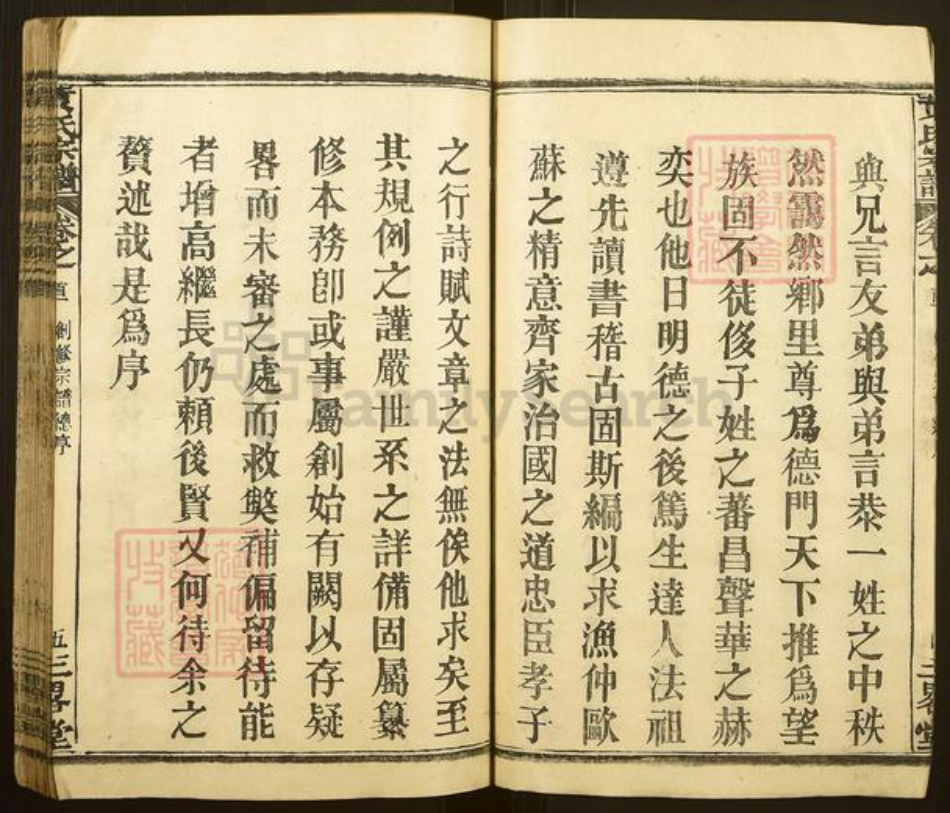 與兄言友弟與弟言恭一姓之中秩
然靄然鄉里尊爲德門天下推爲望
族固不徒侈子姓之蕃昌聲華之赫
奕也他日明德之後篤生達人法祖
遵先讀書稽古固斯編以求漁仲歐
蘇之精意齊家治國之道忠臣孝子
之行詩賦文章之法無俟他求矣至
其規例之謹嚴世系之詳備固屬纂
修本務卽或事屬創始有闕以存疑
畧而未審之處而救獘補偏留待能
者增高繼長仍賴後賢又何待余之
贅述哉是爲序
黃氏宗譜 卷之首 創修宗譜總序 五 三畧堂
FamilySearch